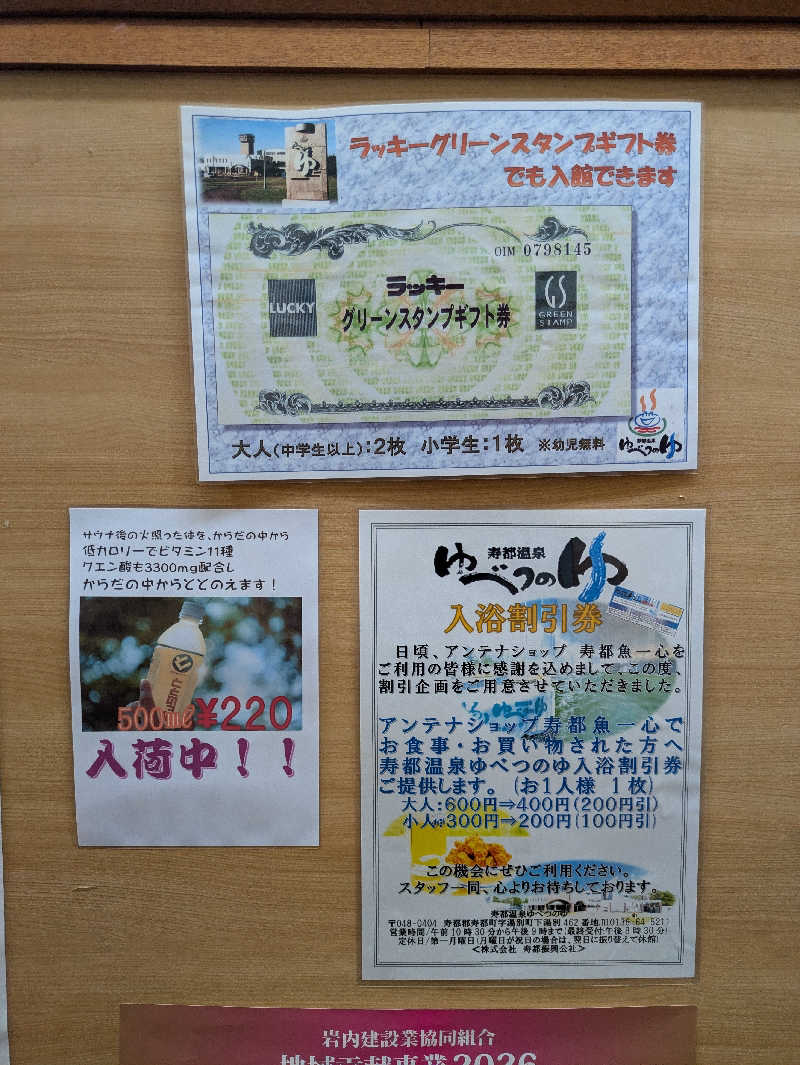 ラッキーグリーンスタンプギフト券
でも入館できます
OIM 0798145
ラッキー
グリーンスタンプギフト券
LUCKY
GS
GREEN
STAMP
大人(中学生以上):2枚 小学生:1枚 ※幼児無料
寿都温泉
ゆべつのゆ
サウナ後の火照った体を、からだの中から
低カロリーでビタミン11種
クエン酸も3300mg配合し
からだの中からととのえます!
500mℓ¥220
入荷中!!
寿都温泉
ゆべつのゆ
入浴割引券
日頃、アンテナショップ 寿都魚一心を
ご利用の皆様に感謝を込めまして、この度、
割引企画をご用意させていただきました。
アンテナショップ寿都魚一心で
お食事・お買い物された方へ
寿都温泉ゆべつのゆ入浴割引券
ご提供します。(お1人様 1枚)
大人:600円⇒400円(200円引)
300円⇒200円(100円引)
この機会にぜひご利用ください。
スタッフ一同、心よりお待ちしております。
寿都温泉ゆべつのゆ
〒048-0404 寿都郡寿都町字湯別町下湯別462番地
営業時間/午前10時30分から午後9時まで(最終受付:午後8時30分)
定休日/第一月曜日(月曜日が祝日の場合は、翌日に振り替えて休館)
<株式会社 寿都振興公社>
岩内建設業協同組合
地域貢献事業2026